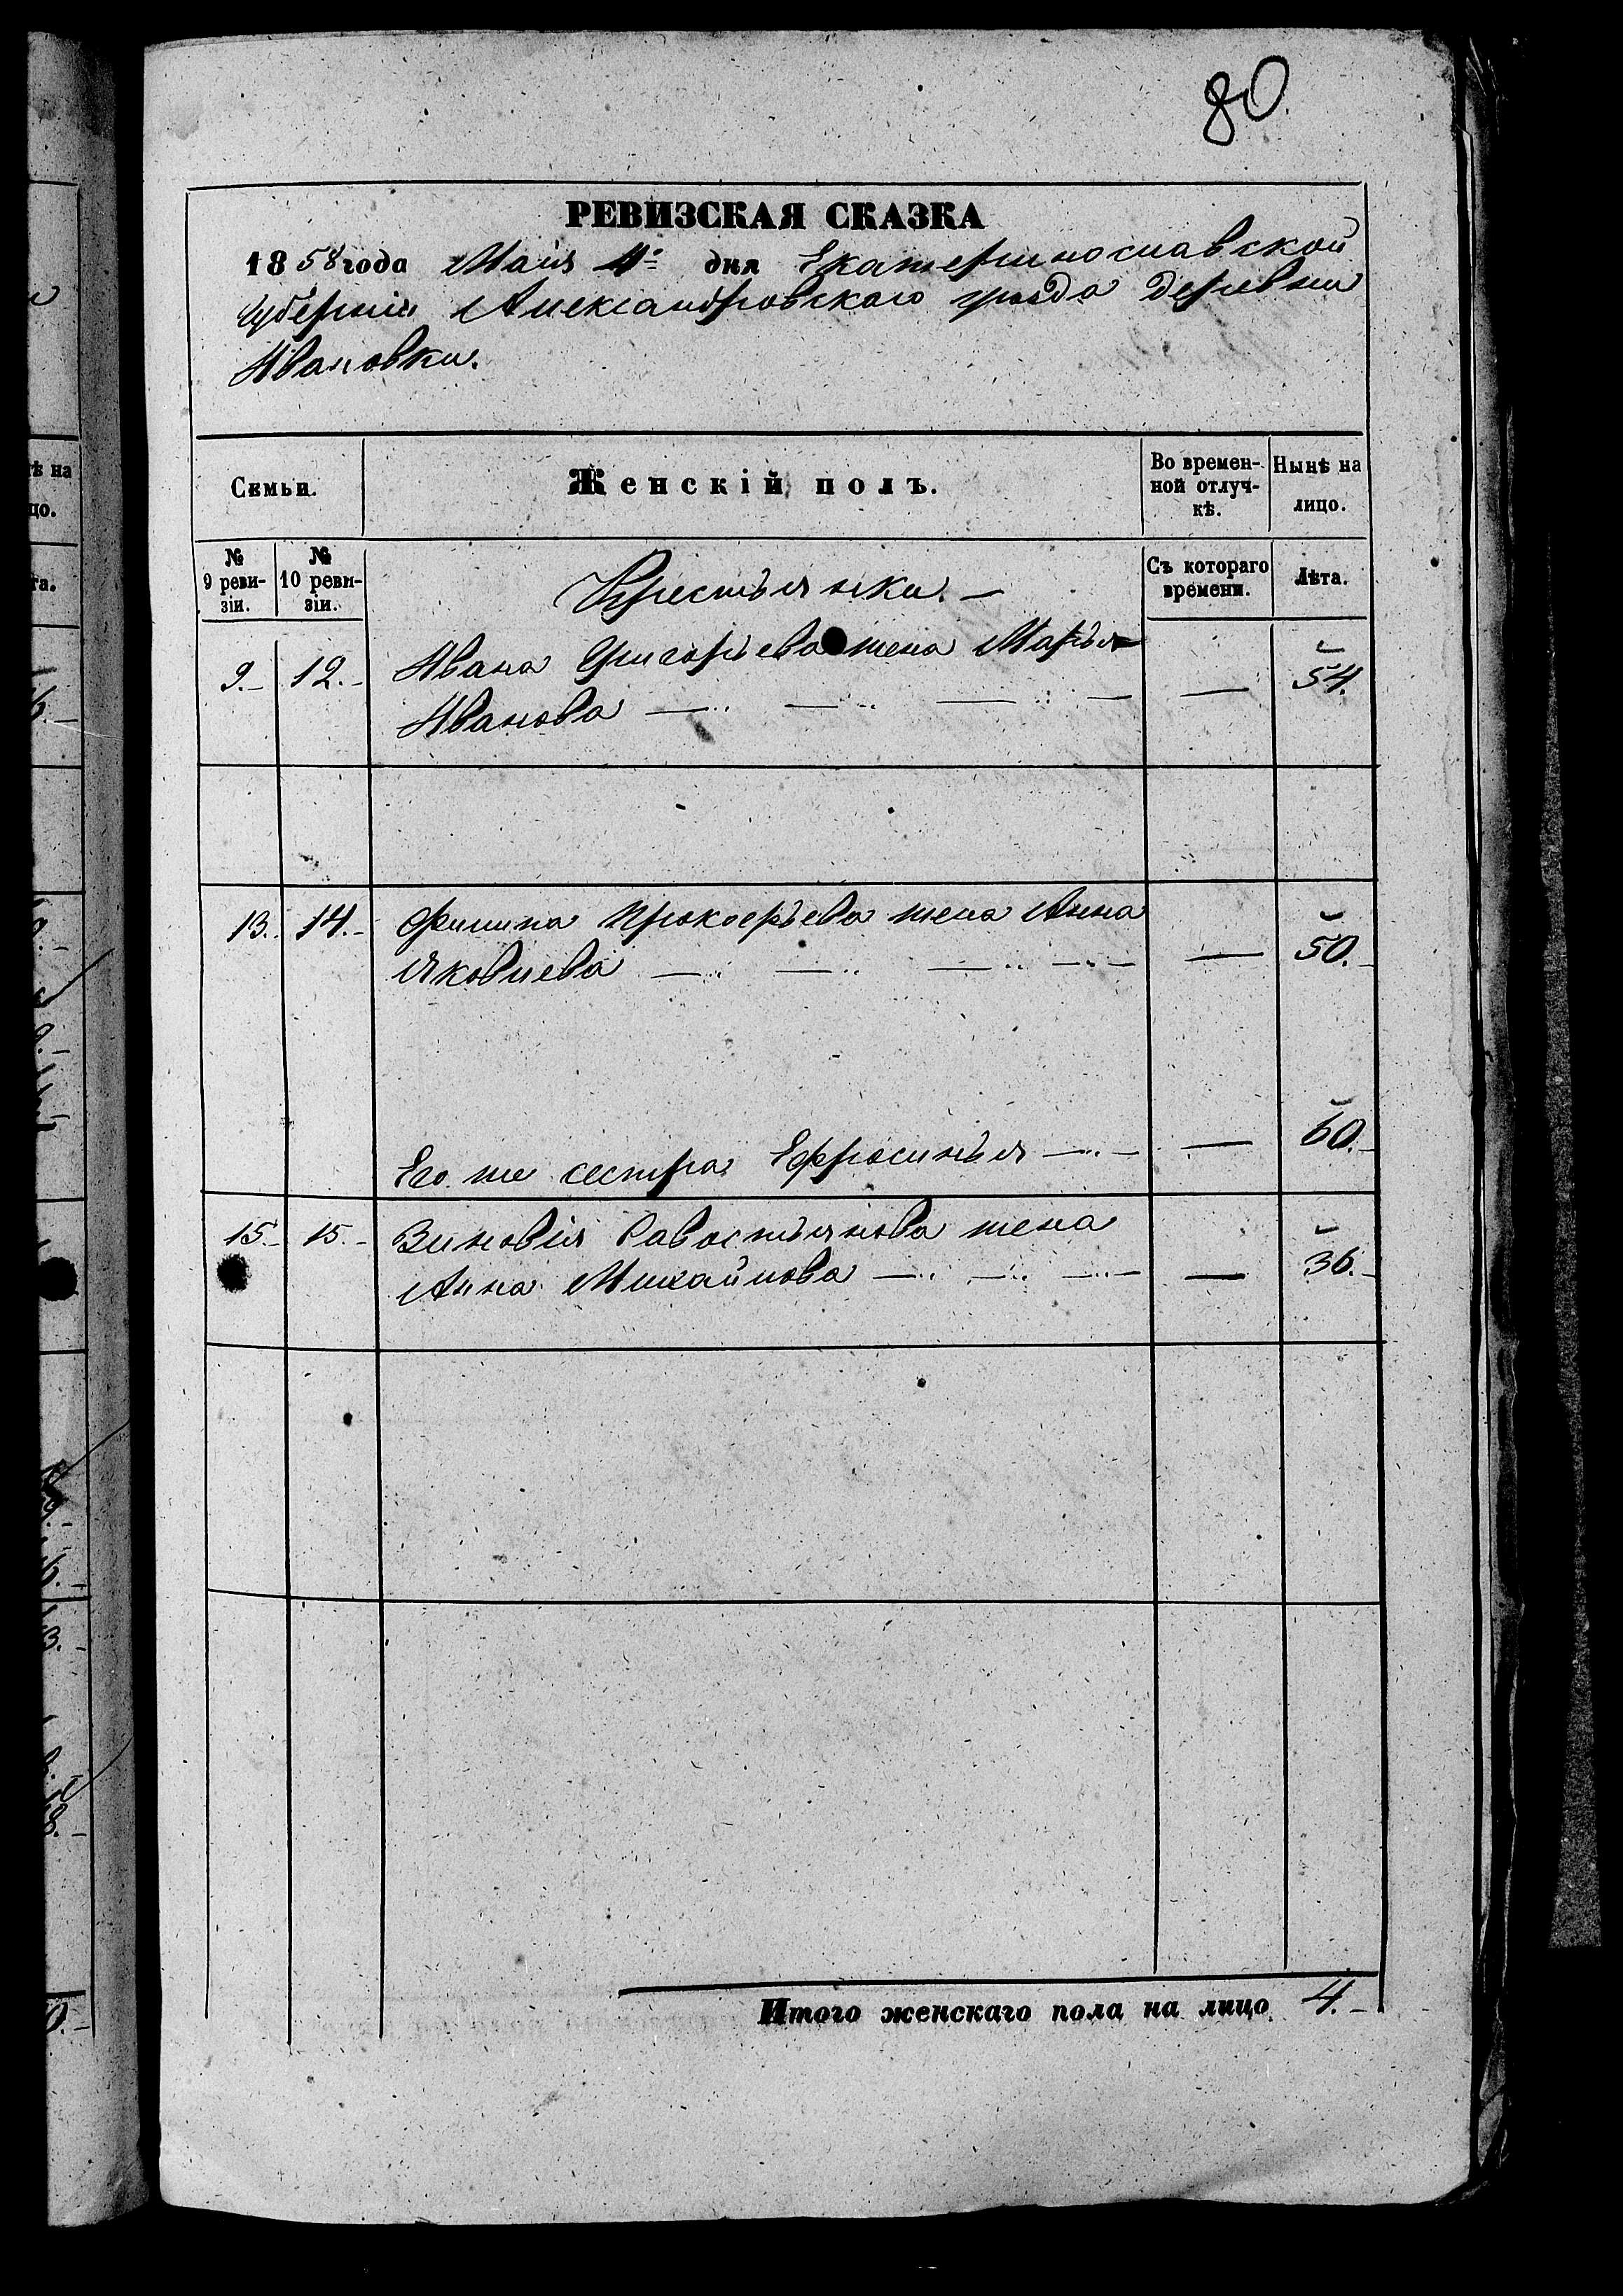 80.
РЕВИЗСКАЯ СКАЗКА
1858 года Маія 4 дня Екатеринославской
Губерніи Александровскаго уезда деревни
Ивановки.
Семьи.
Женскій полъ.
Во времен-
ной отлуч-
кѣ.
Нынѣ на
лицо.
№
9 реви-
зіи.
№
10 реви-
зіи.
Крестьянки. —
Съ котораго
времени.
Лѣта.
9. 12. Ивана Григорьева жена Марья
Иванова — 54.
13. 14. Филипа Прокофьева жена Анна
Яковлева — 50.
Его же сестра Ефросинья — 60.
15. 15. Зиновія Савостьянова жена
Анна Михайлова — 36.
Итого женскаго пола на лицо 4.